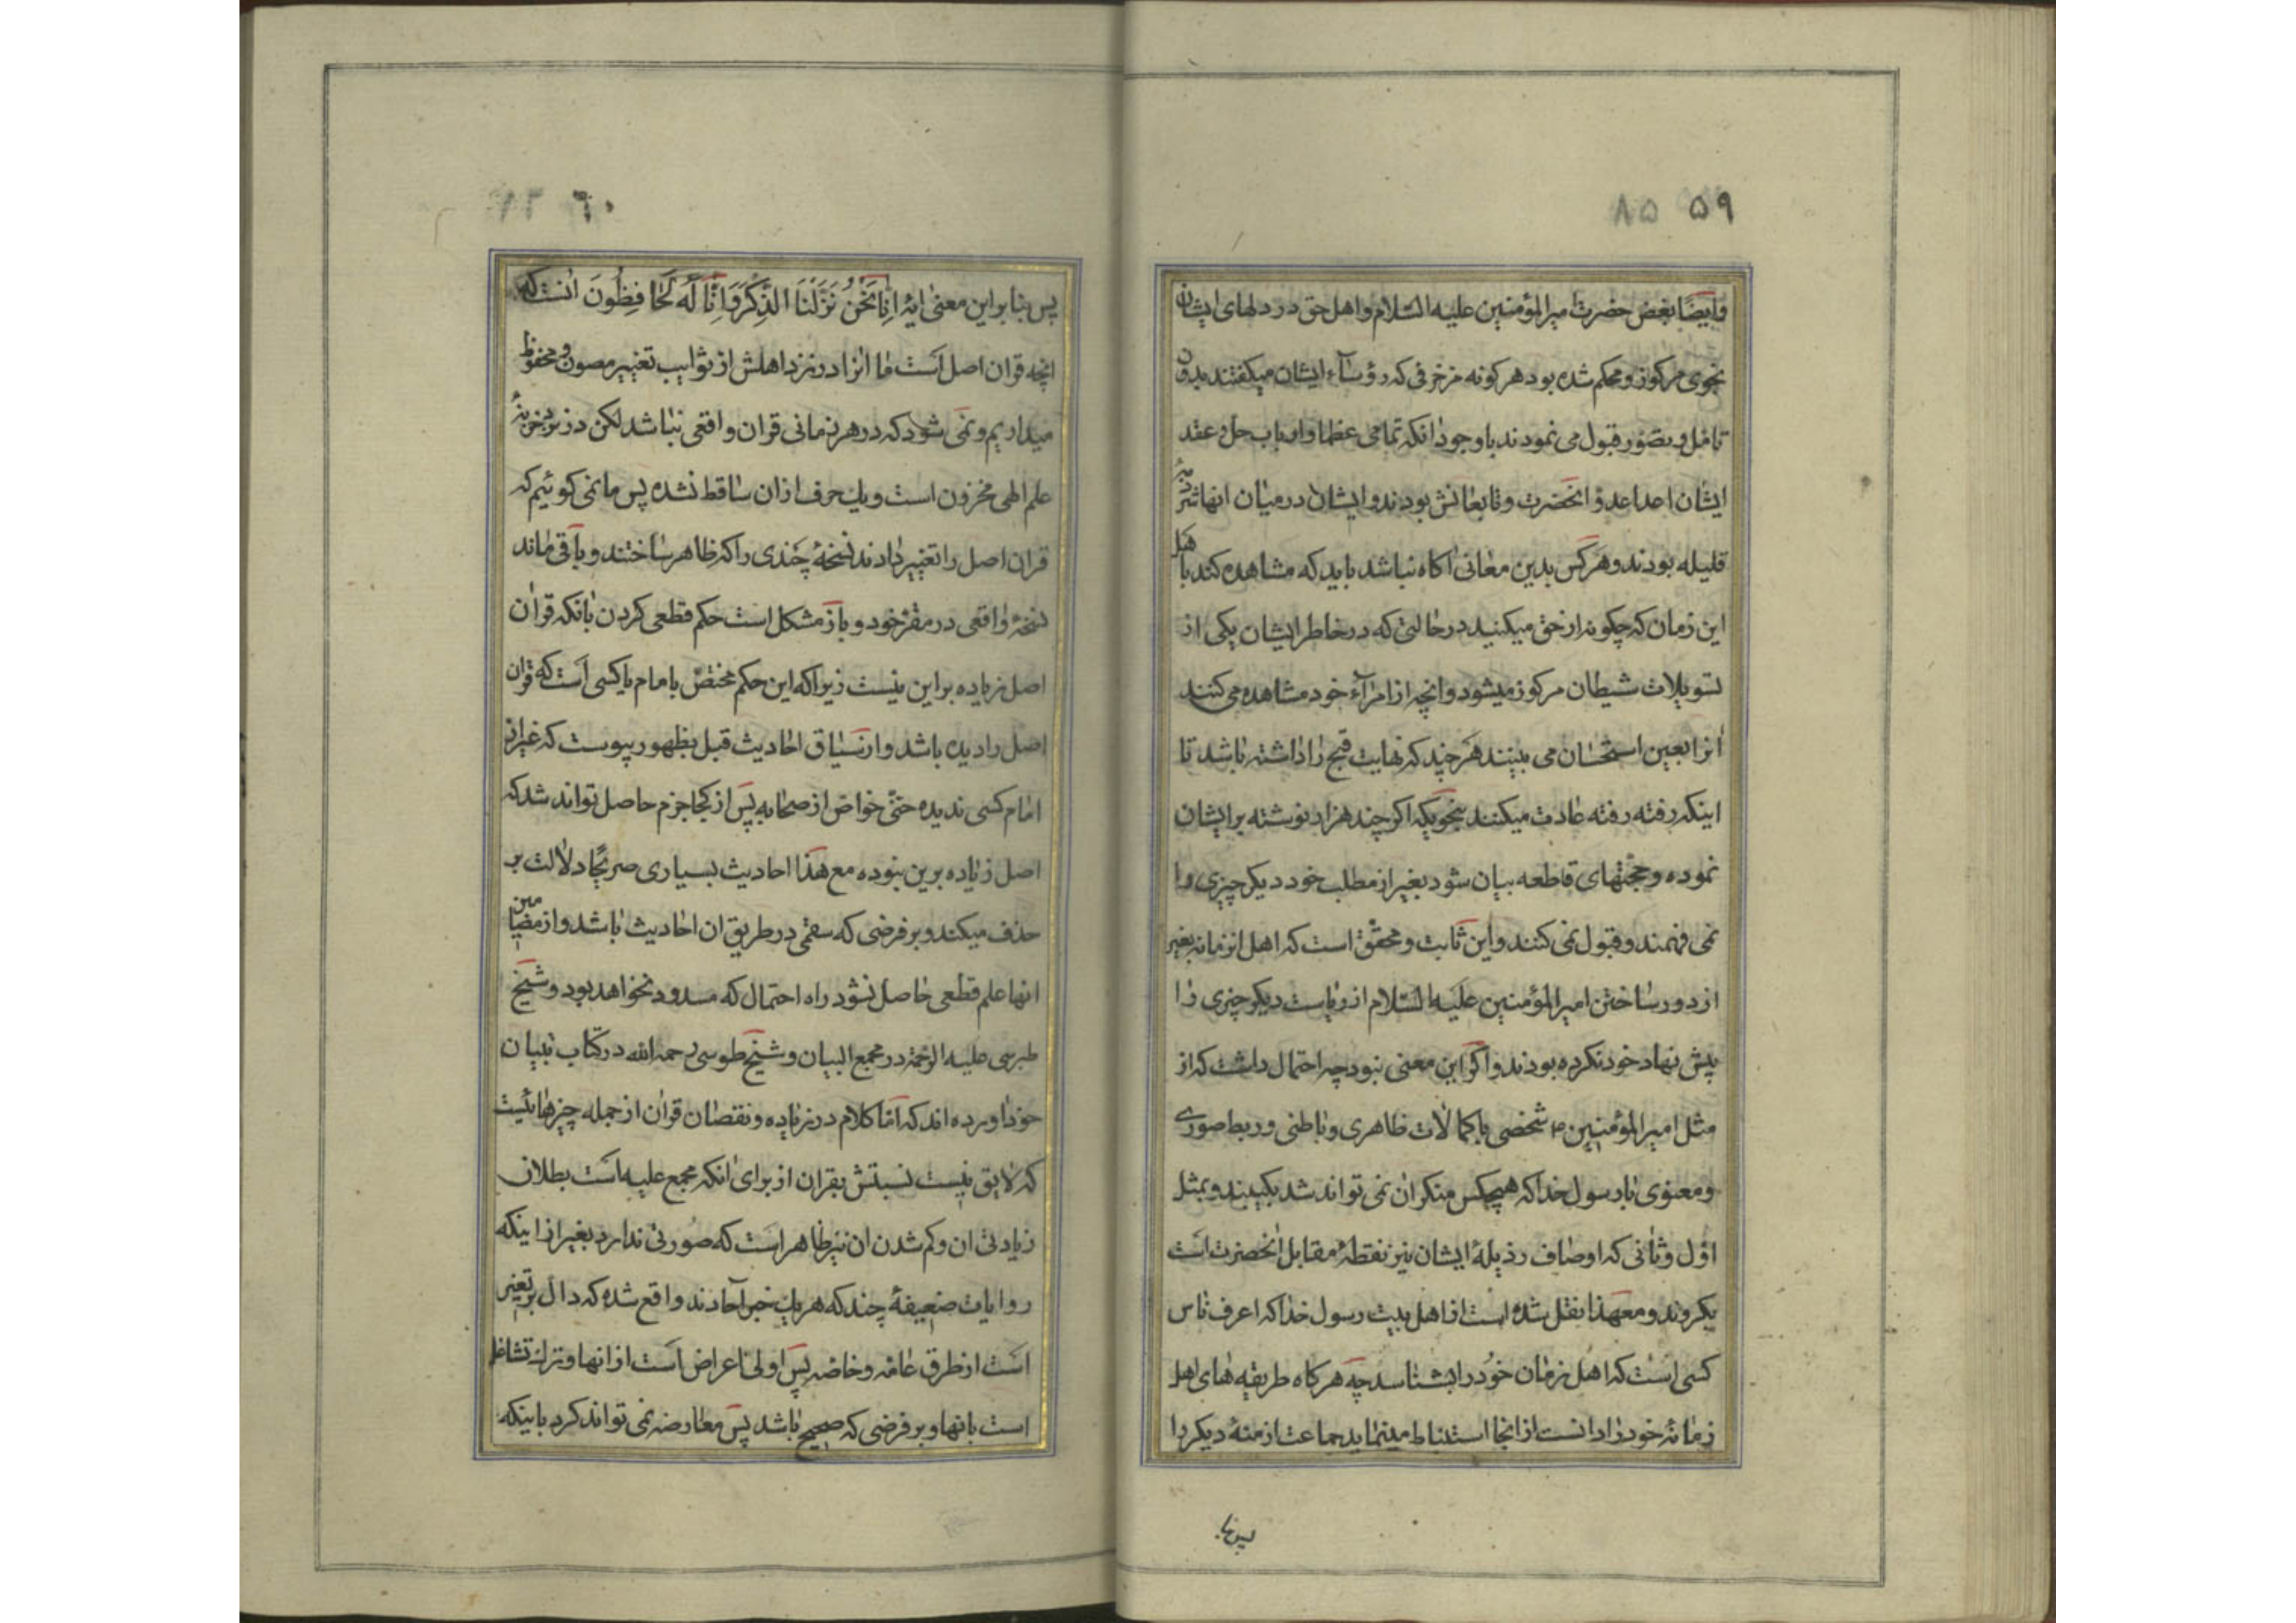 ۵۹ ۸۵
وایضًا بغض حضرت میرالمؤمنین علیه السّلام واهل حق در دلهای ایشان
بنحوی مرکوز و محکم شده بود هر کونه مزخرفی که رؤسآء ایشان میکفتند بدون
تامّل و تصوّر قبول می نمودند باوجود انکه تمامی عظما و ارباب حل و عقد
ایشان اعدا عدوّ انحضرت و تابعانش بودند و ایشان در میان انها شرذمهٔ
قلیله بودند و هر کس بدین معانی اکاه نباشد باید که مشاهده کند باهل
این زمان که چکونه از حق میکنید در حالتی که در خاطر ایشان یکی از
تسویلات شیطان مرکوز میشود و انچه از امرآء خود مشاهده می کنند
انرا بعین استحسان می بینند هر چند که نهایت قبح را داشته باشد تا
اینکه رفته رفته عادت میکنند بنحویکه اکر چند هزار نوشته بر ایشان
نموده و حجّتهای قاطعه بیان شود بغیر از مطلب خود دیکر چیزی را
نمی فهمند و قبول نمی کنند و این ثابت و محقّق است که اهل انزمانه بغیر
از دور ساختن امیرالمؤمنین علیه السّلام از ریاست دیکر چیزی را
پیش نهاد خود نکرده بودند و اکر این معنی نبود چه احتمال داشت که از
مثل امیرالمؤمنین ۴ شخصی با کمالات ظاهری و باطنی و ربط صوری
و معنوی با رسول خدا که هیچکس منکر ان نمی تواند شد بکیبند و بمثل
اوّل و ثانی که اوصاف رذیلهٔ ایشان نیز نقطهٔ مقابل انحضرت است
بکروند و معهذا نقل شده است از اهل بیت رسول خدا که اعرف ناس
کسی است که اهل زمان خود را بشناسد چه هرکاه طریقه های اهل
زمانهٔ خود را دانست از انجا استنباط مینماید جماعت ازمنهٔ دیکر را
پس بنا
۶۰ ۱۳
پس بنا براین معنی ایهٔ اِنّا نَحْنُ نَزَّلْنَا الذِّکْرَ وَ اِنّٰا لَهُ لَحٰافِظُونَ انست که
انچه قران اصل است ما انرا در نزد اهلش از شوایب تغییر مصون و محفوظ
میداریم و نمی شود که در هر زمانی قران واقعی نباشد لکن در نزد خزینهٔ
علم الهی مخزون است و یك حرف از ان ساقط نشده پس ما نمی کوئیم که
قران اصل را تغییر دادند نسخهٔ چندی را که ظاهر ساختند و باقی ماند
نسخهٔ واقعی در مقرّ خود و باز مشکل است حکم قطعی کردن بانکه قران
اصل زیاده بر این نیست زیرا که این حکم مختصّ بامام یا کسی است که قران
اصل را دیده باشد و از سیاق احادیث قبل بظهور پیوست که غیر از
امام کسی ندیده حتّی خواصّ از صحابه پس از کجا جزم حاصل تواند شد که
اصل زیاده برین نبوده مع هذا احادیث بسیاری صریحًا دلالت بر
حذف میکند و بر فرضی که سقمی در طریق ان احادیث باشد و از مضامین
انها علم قطعی حاصل نشود راه احتمال که مسدود نخواهد بود و شیخ
طبرسی علیه الرّحمه در مجمع البیان و شیخ طوسی رحمه الله در کتاب تبیان
خود اورده اند که امّا کلام در زیاده و نقصان قران از جمله چیزهائیست
که لایق نیست نسبتش بقران از برای انکه مجمع علیه است بطلان
زیادتی ان و کم شدن ان نیز ظاهر است که صورتی ندارد بغیر از اینکه
روایات ضعیفهٔ چند که هر یك خبر آحادند واقع شده که دالّ بر تغییر
است از طرق عامّه و خاصّه پس اولی اعراض است از انها و ترك تشاغل
است بانها و بر فرضی که صحیح باشد پس معارضه نمی تواند کرد باینکه